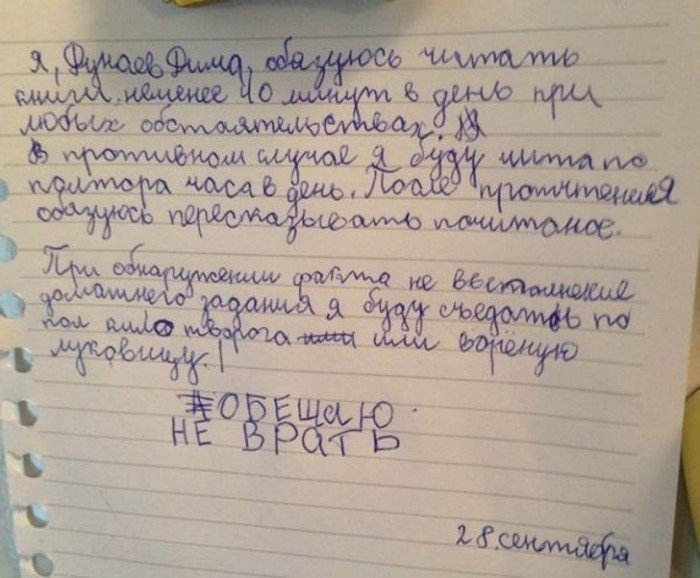 Я, Дунаев Дима, обязуюсь читать
книги неменее 40 минут в день при
любых обстоятельствах.
В противном случае я буду читать по
полтора часа в день. После проттчтения
обязуюсь пересказывать почитаное.
При обнаружении факта не выполнение
домашнего задания я буду съедать по
пол кило творога или или варёную
луковицу.
#ОБЕЩАЮ
НЕ ВРАТЬ
28.сентября